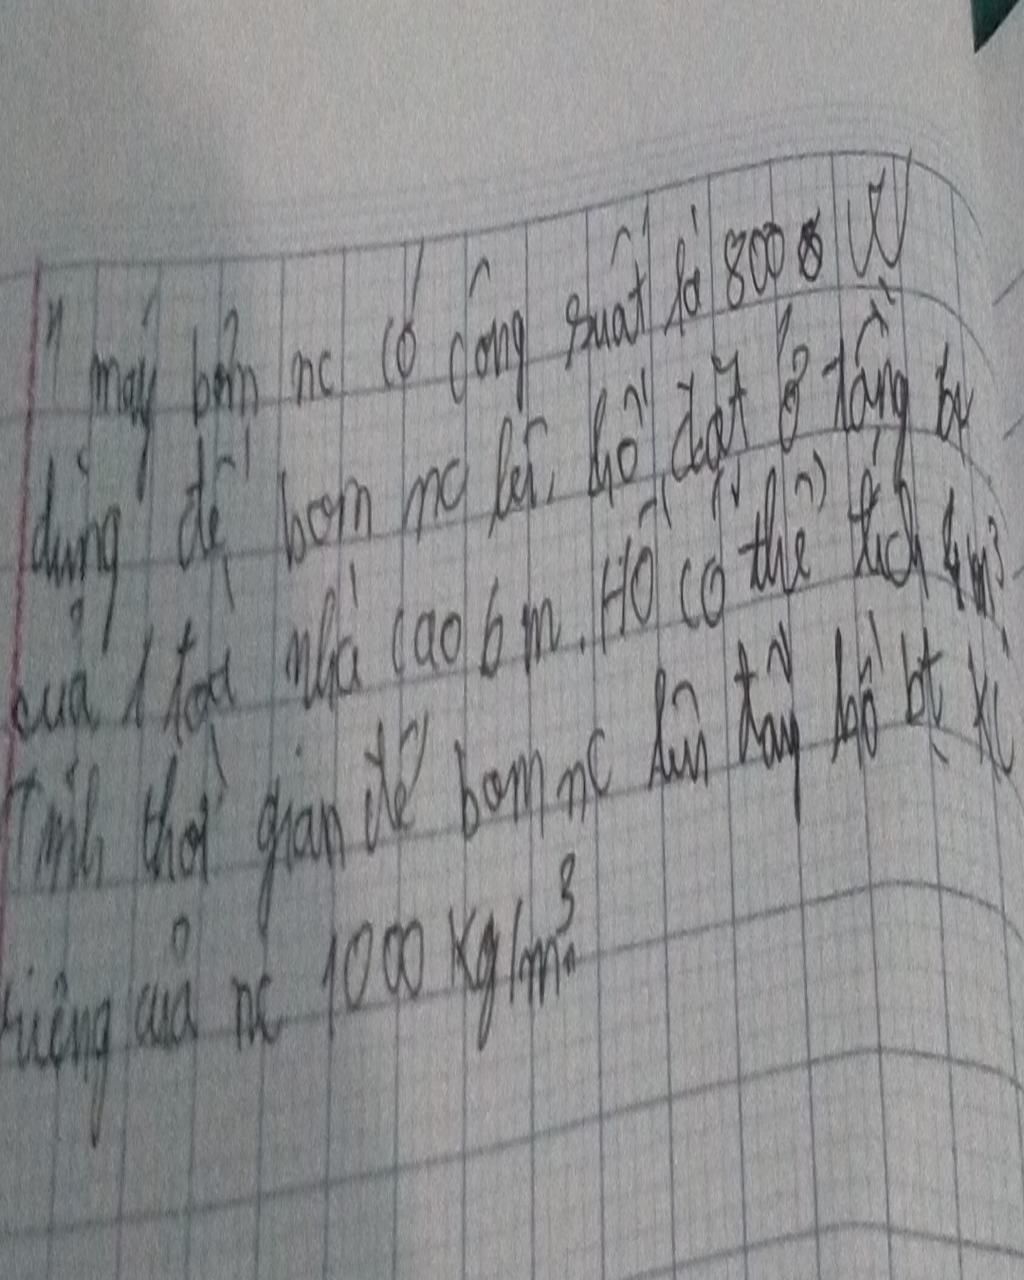 1 máy bơm nc có công suất là 800 W
dùng để bơm nc lên hồ đặt ở tầng
của 1 toà nhà cao 6 m. Hồ có thể tích 4m³
Tính thời gian để bơm nc lên đầy hồ bt
riêng của nc 1000 Kg/m³